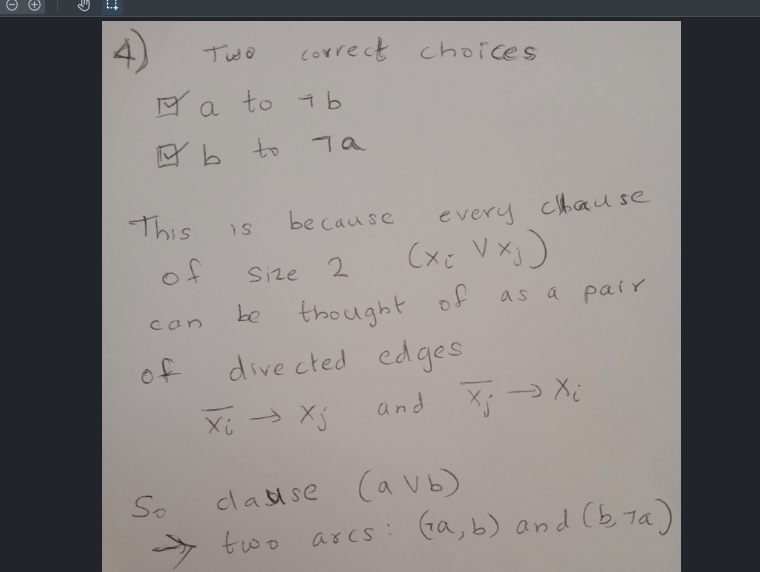 4) Two correct choices
☑ a to ¬b
☑ b to ¬a
This is because every clause
of size 2 (xi ∨ xj)
can be thought of as a pair
of directed edges
x̅i → xj and x̅j → xi
So clause (a ∨ b)
→ two arcs: (¬a, b) and (b, ¬a)